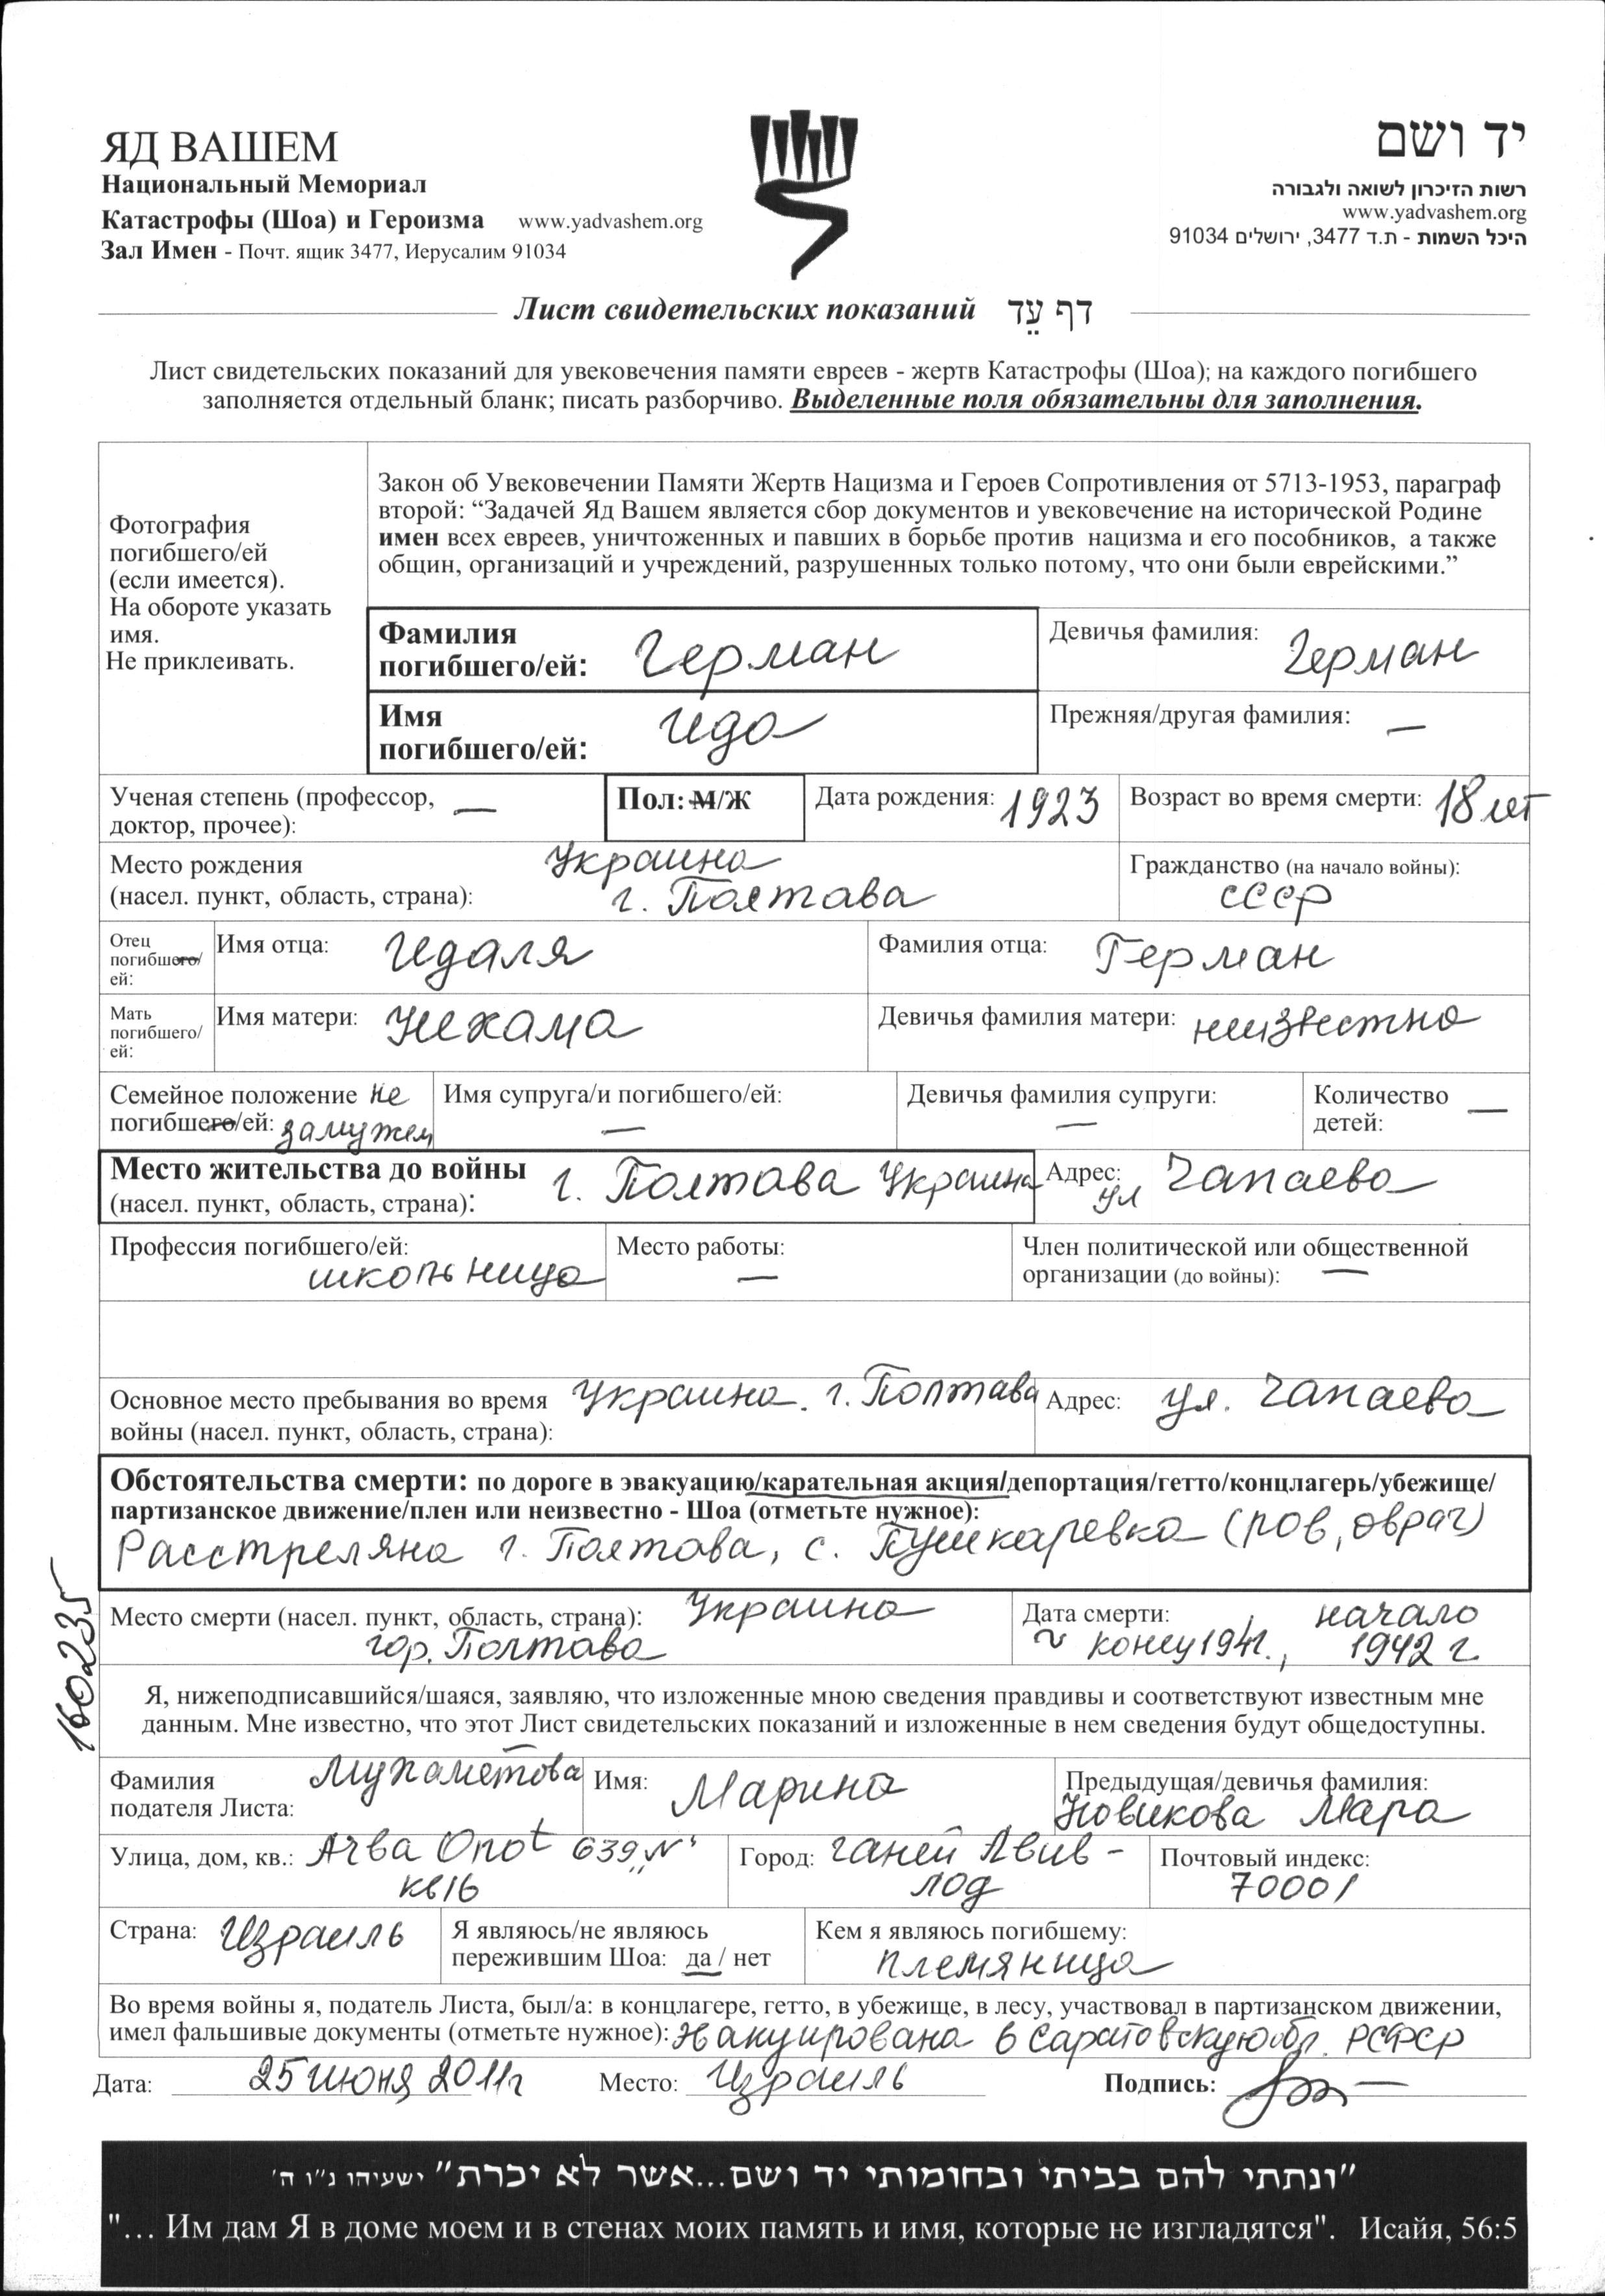 ЯД ВАШЕМ
Национальный Мемориал
Катастрофы (Шоа) и Героизма www.yadvashem.org
Зал Имен - Почт. ящик 3477, Иерусалим 91034
יד ושם
רשות הזיכרון לשואה ולגבורה
www.yadvashem.org
היכל השמות - ת.ד 3477, ירושלים 91034
Лист свидетельских показаний דף עֵד
Лист свидетельских показаний для увековечения памяти евреев - жертв Катастрофы (Шоа); на каждого погибшего
заполняется отдельный бланк; писать разборчиво. Выделенные поля обязательны для заполнения.
Фотография
погибшего/ей
(если имеется).
На обороте указать
имя.
Не приклеивать.
Закон об Увековечении Памяти Жертв Нацизма и Героев Сопротивления от 5713-1953, параграф
второй: “Задачей Яд Вашем является сбор документов и увековечение на исторической Родине
имен всех евреев, уничтоженных и павших в борьбе против нацизма и его пособников, а также
общин, организаций и учреждений, разрушенных только потому, что они были еврейскими.”
Фамилия
погибшего/ей: Герман
Девичья фамилия: Герман
Имя
погибшего/ей: Ида
Прежняя/другая фамилия: —
Ученая степень (профессор, —
доктор, прочее):
Пол: М/Ж
Дата рождения: 1923
Возраст во время смерти: 18 лет
Место рождения Украина
(насел. пункт, область, страна): г. Полтава
Гражданство (на начало войны):
СССР
Отец
погибшего/
ей:
Имя отца: Идаля
Фамилия отца: Герман
Мать
погибшего/
ей:
Имя матери: Нехама
Девичья фамилия матери: неизвестно
Семейное положение не
погибшего/ей: замужем
Имя супруга/и погибшего/ей:
—
Девичья фамилия супруги:
—
Количество —
детей:
Место жительства до войны г. Полтава Украина
(насел. пункт, область, страна):
Адрес: ул Чапаева
Профессия погибшего/ей:
школьница
Место работы:
—
Член политической или общественной
организации (до войны): —
Основное место пребывания во время Украина. г. Полтава
войны (насел. пункт, область, страна):
Адрес: ул. Чапаева
Обстоятельства смерти: по дороге в эвакуацию/карательная акция/депортация/гетто/концлагерь/убежище/
партизанское движение/плен или неизвестно - Шоа (отметьте нужное):
Расстреляна г. Полтава, с. Пушкаревка (ров, овраг)
Место смерти (насел. пункт, область, страна): Украина
гор. Полтава
Дата смерти: начало
~ конец 1941г., 1942 г.
160235
Я, нижеподписавшийся/шаяся, заявляю, что изложенные мною сведения правдивы и соответствуют известным мне
данным. Мне известно, что этот Лист свидетельских показаний и изложенные в нем сведения будут общедоступны.
Фамилия Мухаметова
подателя Листа:
Имя: Марина
Предыдущая/девичья фамилия:
Новикова Мара
Улица, дом, кв.: 639
кв 16
Город: Ганей Авив -
Лод
Почтовый индекс:
70001
Страна: Израиль
Я являюсь/не являюсь
пережившим Шоа: да / нет
Кем я являюсь погибшему:
племянница
Во время войны я, податель Листа, был/а: в концлагере, гетто, в убежище, в лесу, участвовал в партизанском движении,
имел фальшивые документы (отметьте нужное): Эвакуирована в Саратовскую обл. РСФСР
Дата: 25 июня 2011г Место: Израиль Подпись:
"ונתתי להם בביתי ובחומותי יד ושם...אשר לא יכרת" ישעיהו נ"ו ה'
"… Им дам Я в доме моем и в стенах моих память и имя, которые не изгладятся". Исайя, 56:5